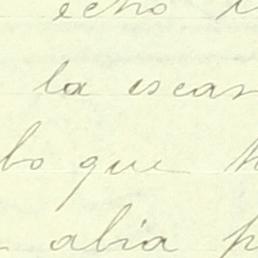 echo
la escas
bo que
abia p